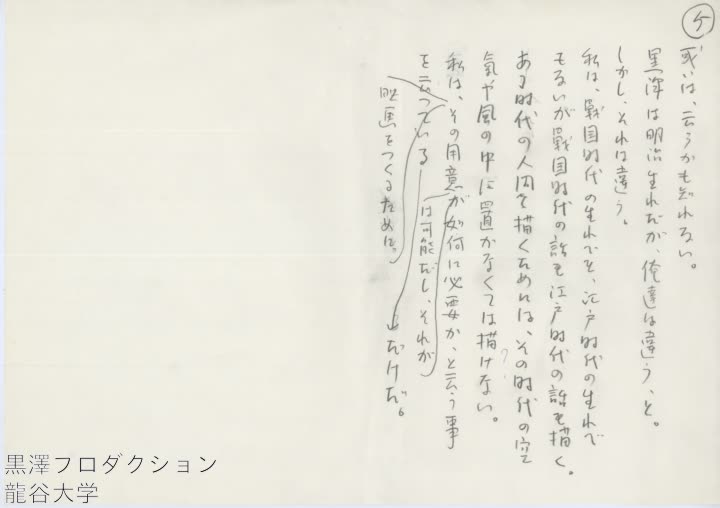 5
或いは、云うかも知れない。
黒澤は明治生れだが、俺達は違う、と。
しかし、それは違う。
私は、戦国時代の生れでも、江戸時代の生れで
もないが戦国時代の話も江戸時代の話も描く。
ある時代の人间を描くためには、その时代の空
気や風の中に置かなくては描けない。
私は、その用意が如何に必要か、と云う事
は可能だし、それが
を云っている
だけだ。
映画をつくるために。
黒澤フロダクション
龍谷大学